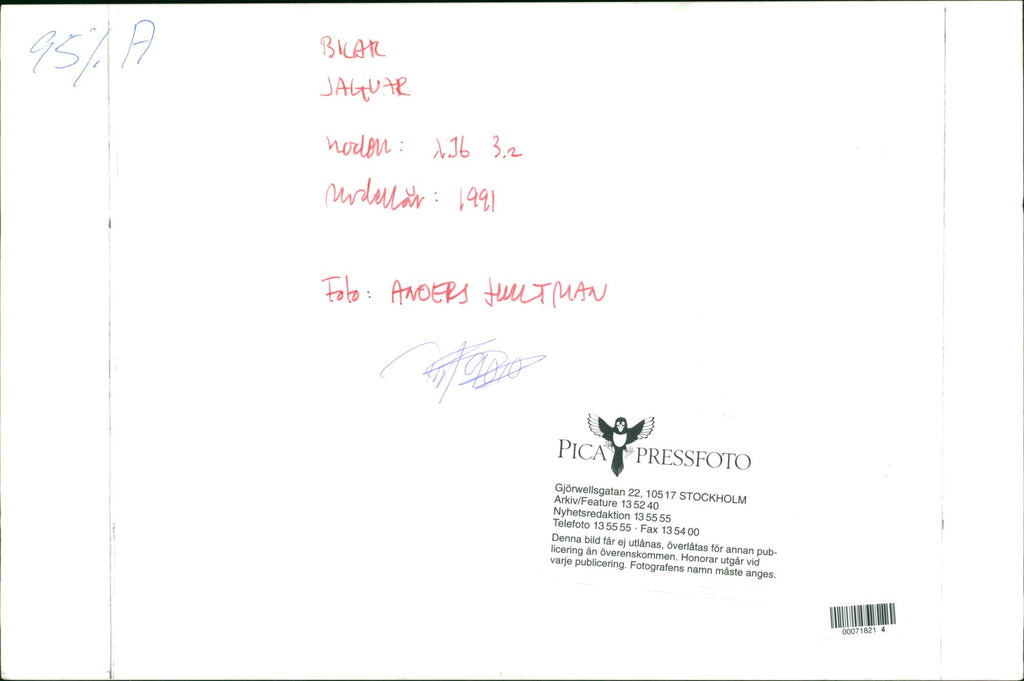 95% A
BILAR
JAGUAR
Modell: XJ6 3.2
Modellår: 1991
Foto: ANDERS HULTMAN
PICA PRESSFOTO
Gjörwellsgatan 22, 105 17 STOCKHOLM
Arkiv/Feature 13 52 40
Nyhetsredaktion 13 55 55
Telefoto 13 55 55 · Fax 13 54 00
Denna bild får ej utlånas, överlåtas för annan pub-
licering än överenskommen. Honorar utgår vid
varje publicering. Fotografens namn måste anges.
00071821 4